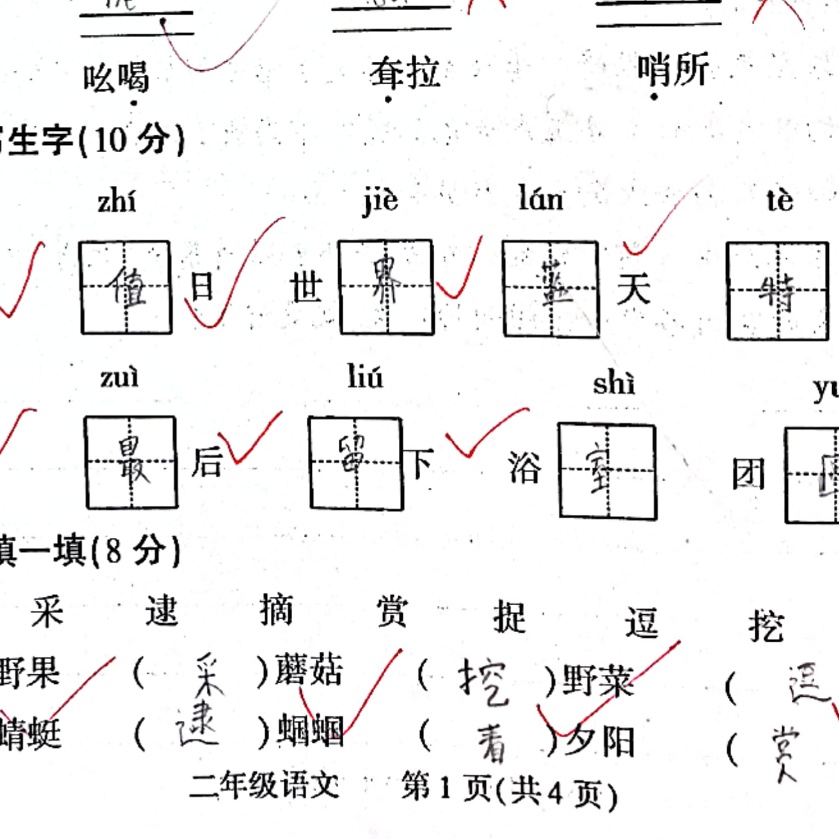 吆喝 耷拉 哨所
写生字(10 分)
zhí jiè lán tè
值日 世界 蓝天 特
zuì liú shì
最后 留下 浴室 团
填一填(8 分)
采 逮 摘 赏 捉 逗 挖
野果 ( 采 )蘑菇 ( 挖 )野菜 ( 逗
蜻蜓 ( 逮 )蝈蝈 ( 看 )夕阳 ( 赏
二年级语文 第 1 页(共 4 页)